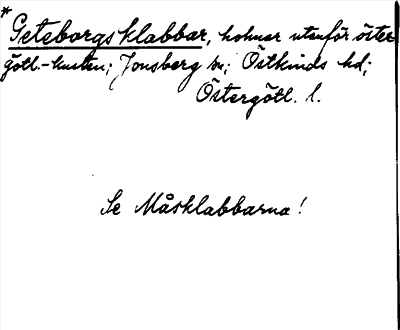 * Geteborgsklabbar, holmar utanför öster
götl.-kusten; Jonsberg sn; Östkinds hd;
Östergötl. l.
Se Måsklabbarna!